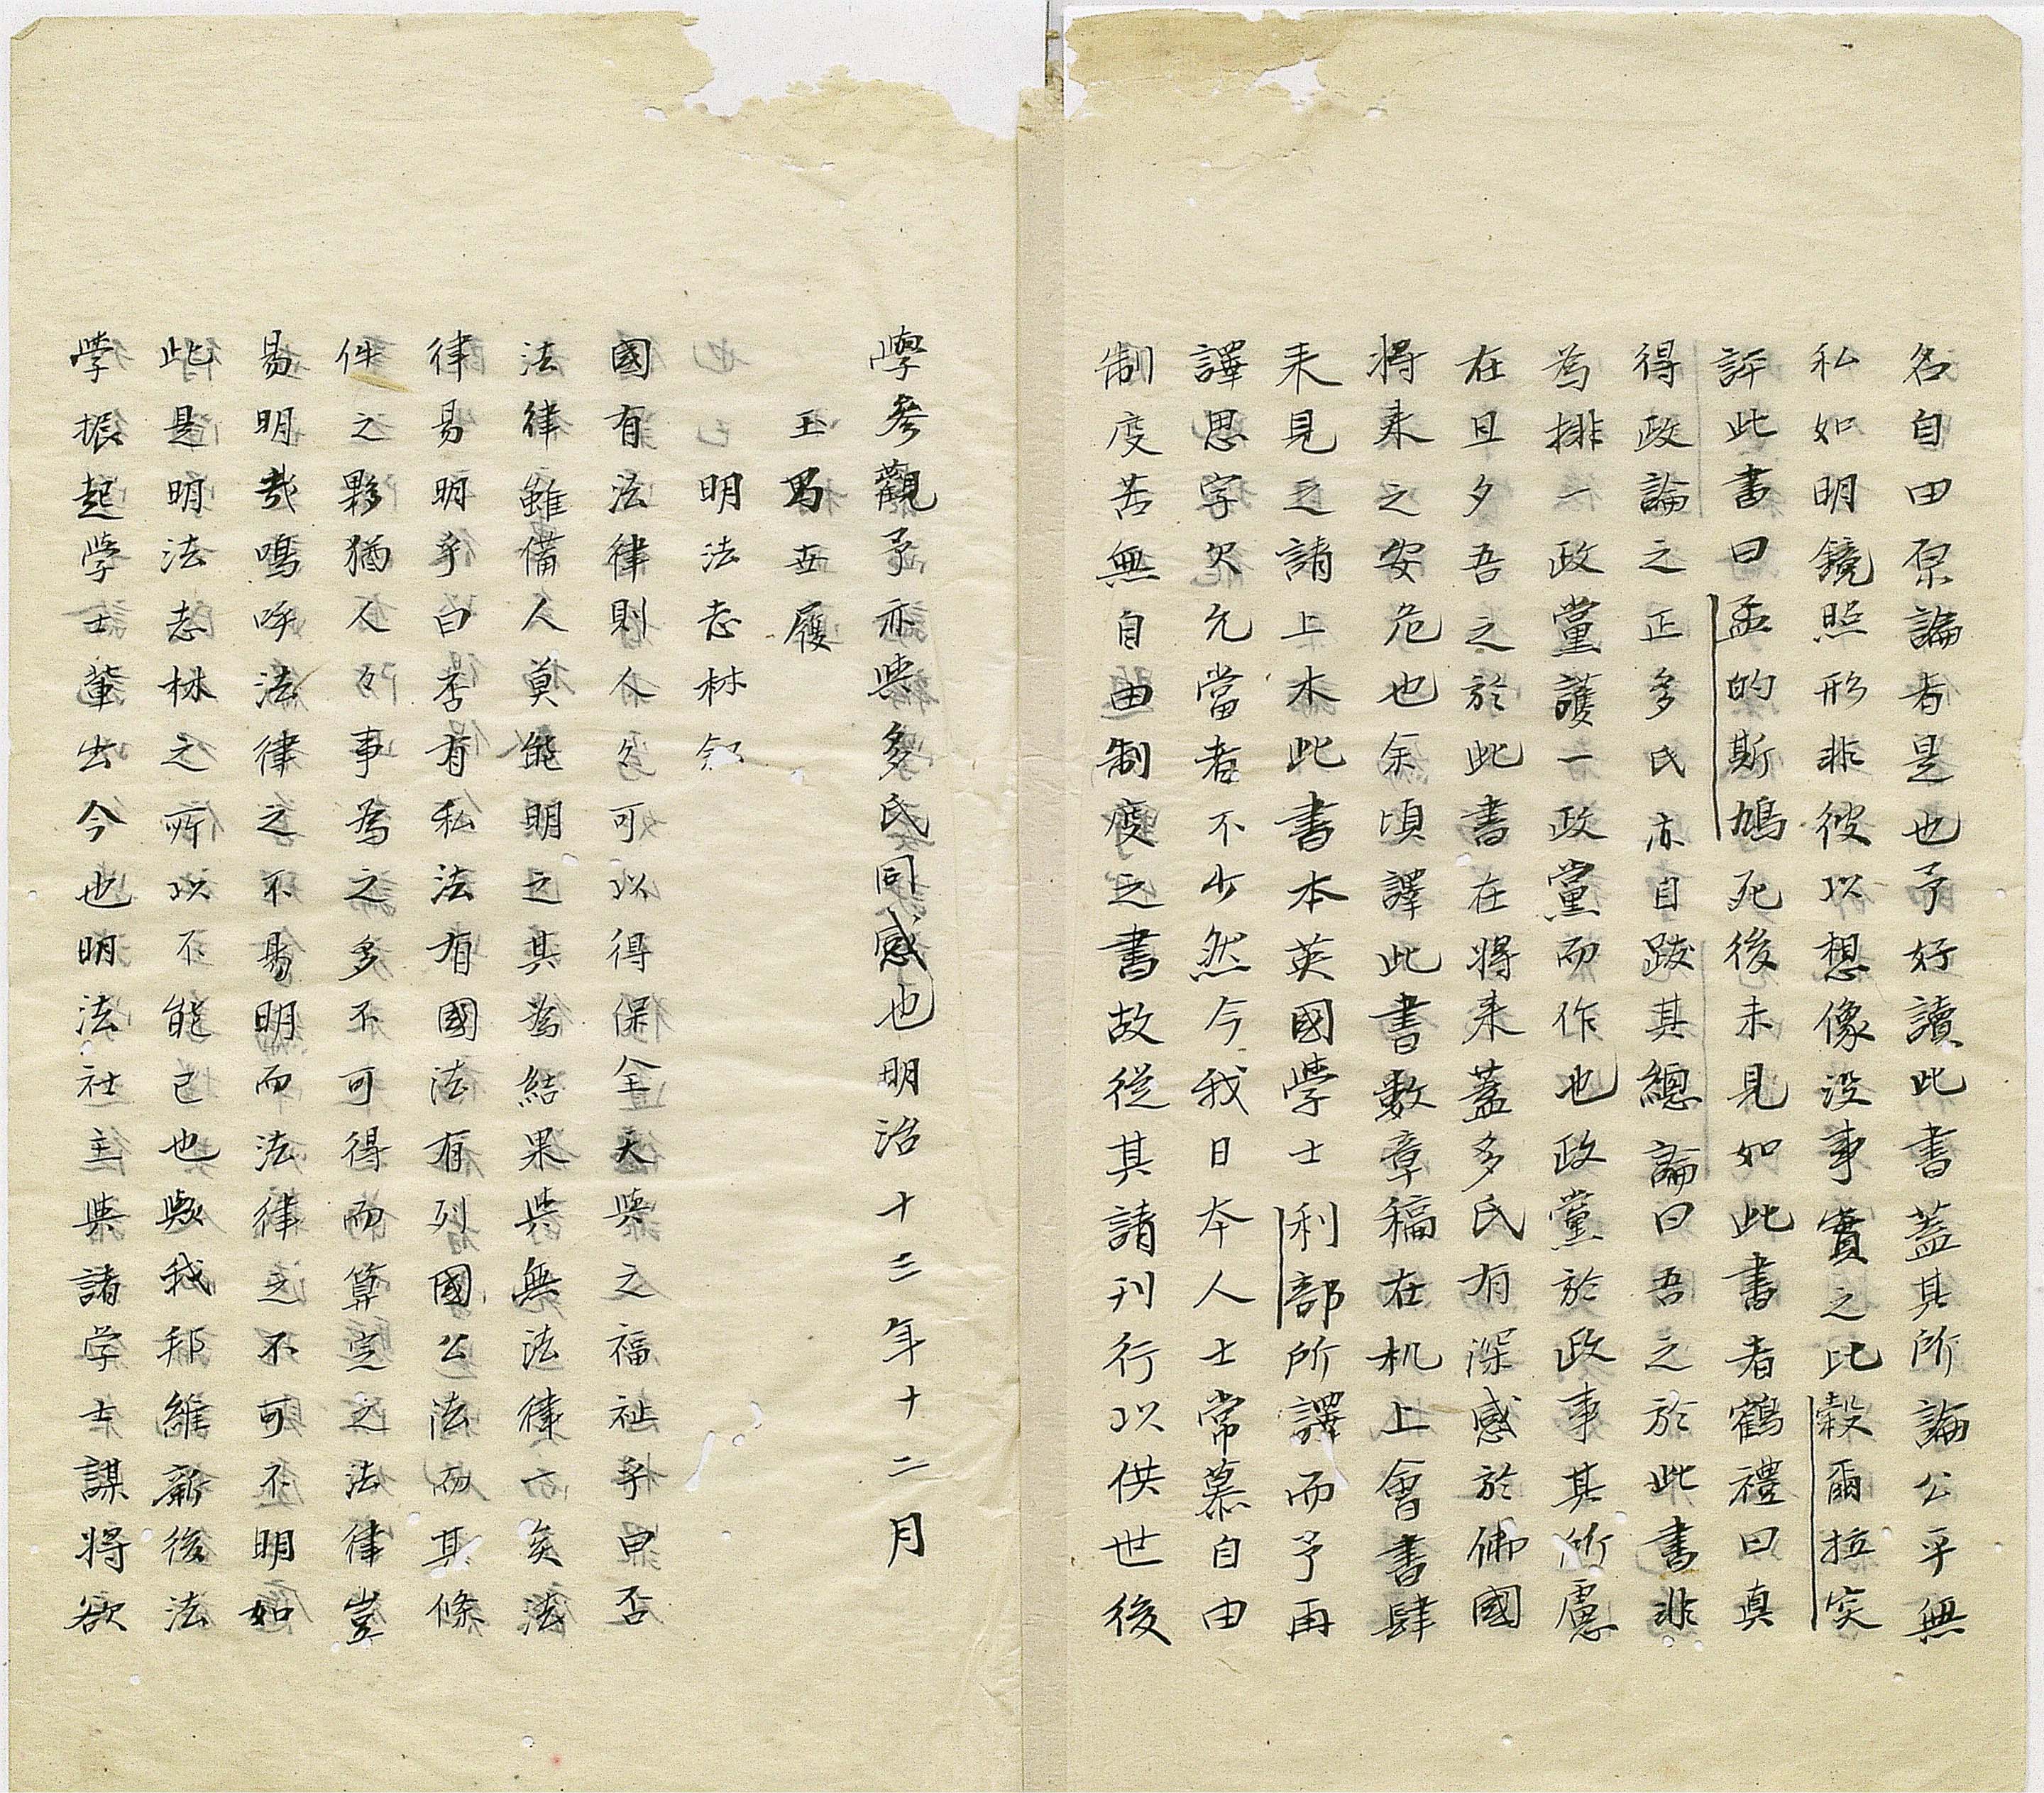 名自由原論者是也予好讀此書蓋其所論公平無
私如明鏡照形非彼以想像没事實之比穀爾拉突
評此書曰孟的斯鳩死後未見如此書者鶴禮曰真
得政論之正多氏亦自跋其總論曰吾之於此書非
為排一政黨護一政黨而作也政黨於政事其所慮
在旦夕吾之於此書在將来蓋多氏有深感於佛國
将来之安危也余頃譯此書數章稿在机上會書肆
来見之請上木此書本英國學士利部所譯而予再
譯思字欠允當者不少然今我日本人士常慕自由
制度苦無自由制度之書故従其請刊行以供世後
學參觀予亦與多氏同感也明治十三年十二月
王馬 世履
明法志林叙
國有法律則人々可以得保全天與之福祉乎曰否
法律雖備人莫能明之其為結果與無法律一矣法
律易明乎曰否有私法有國法有列國公法而其條
件之夥猶人々事為之多不可得而算定之法律豈
易明哉嗚呼法律之不易明而法律之不可不明如
此是明法志林之所以不能已也歟我邦維新後法
学振起学士輩出今也明法社主與諸学士謀将欲